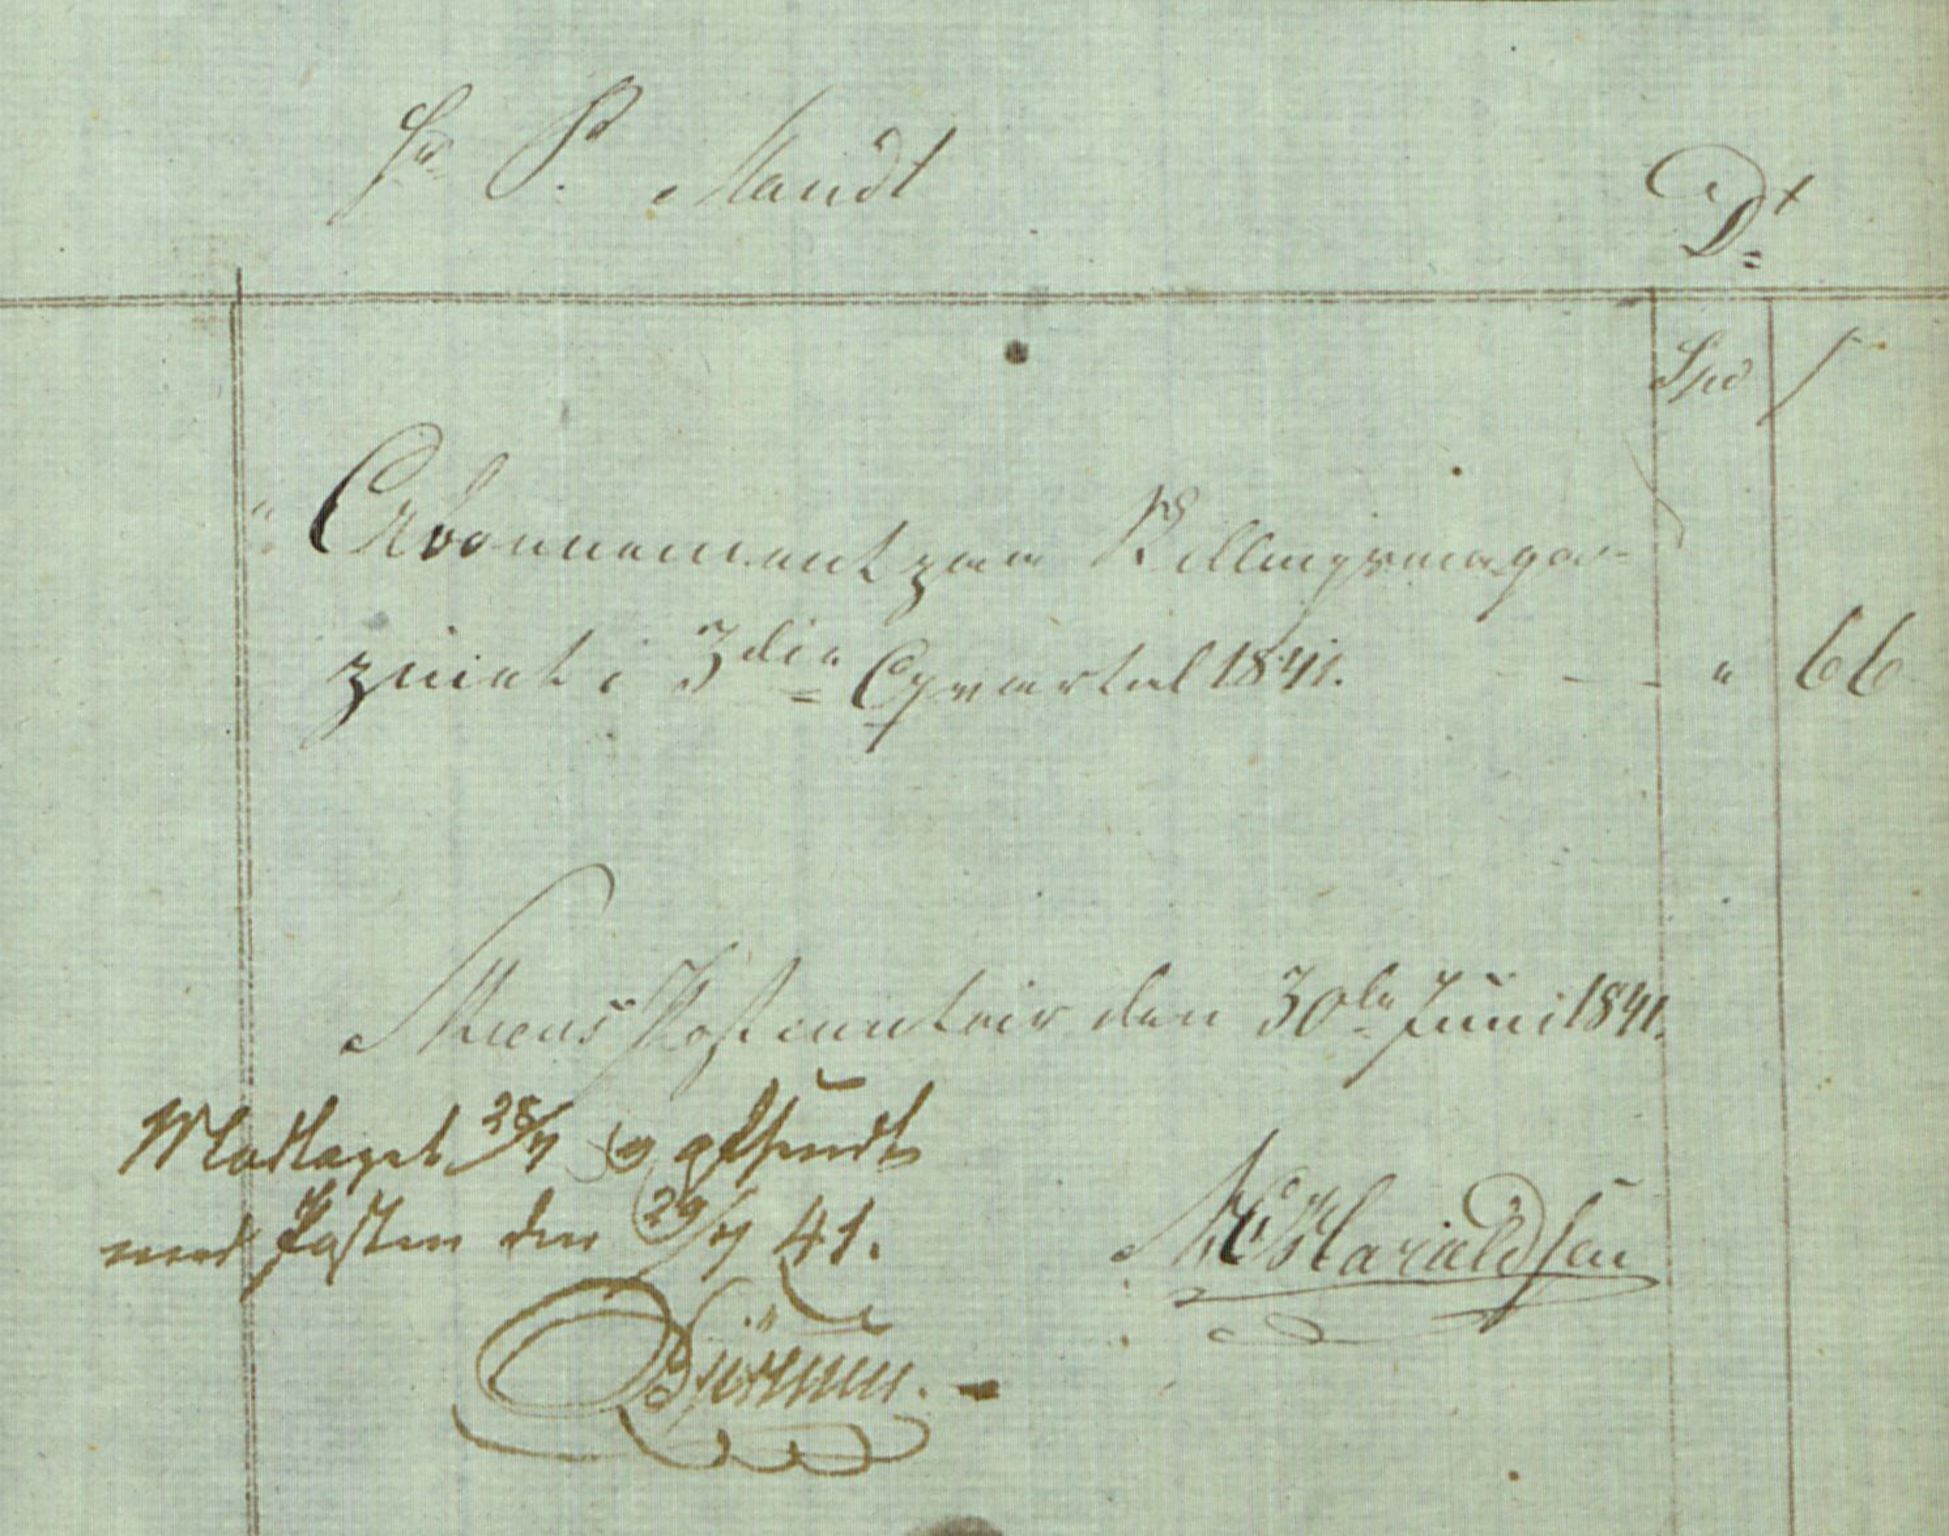 Hr P. Mandt Dt
Spd ſ
" Abonnement paa Skillingsmaga-
zinet i 3die Qvartal 1841. - - " 66
Skiens Postcontoir den 30te Juni 1841.
Modtaget 28/7 og afsendt
med Posten den 29/7 41.
Haraldsen
Björnun. -